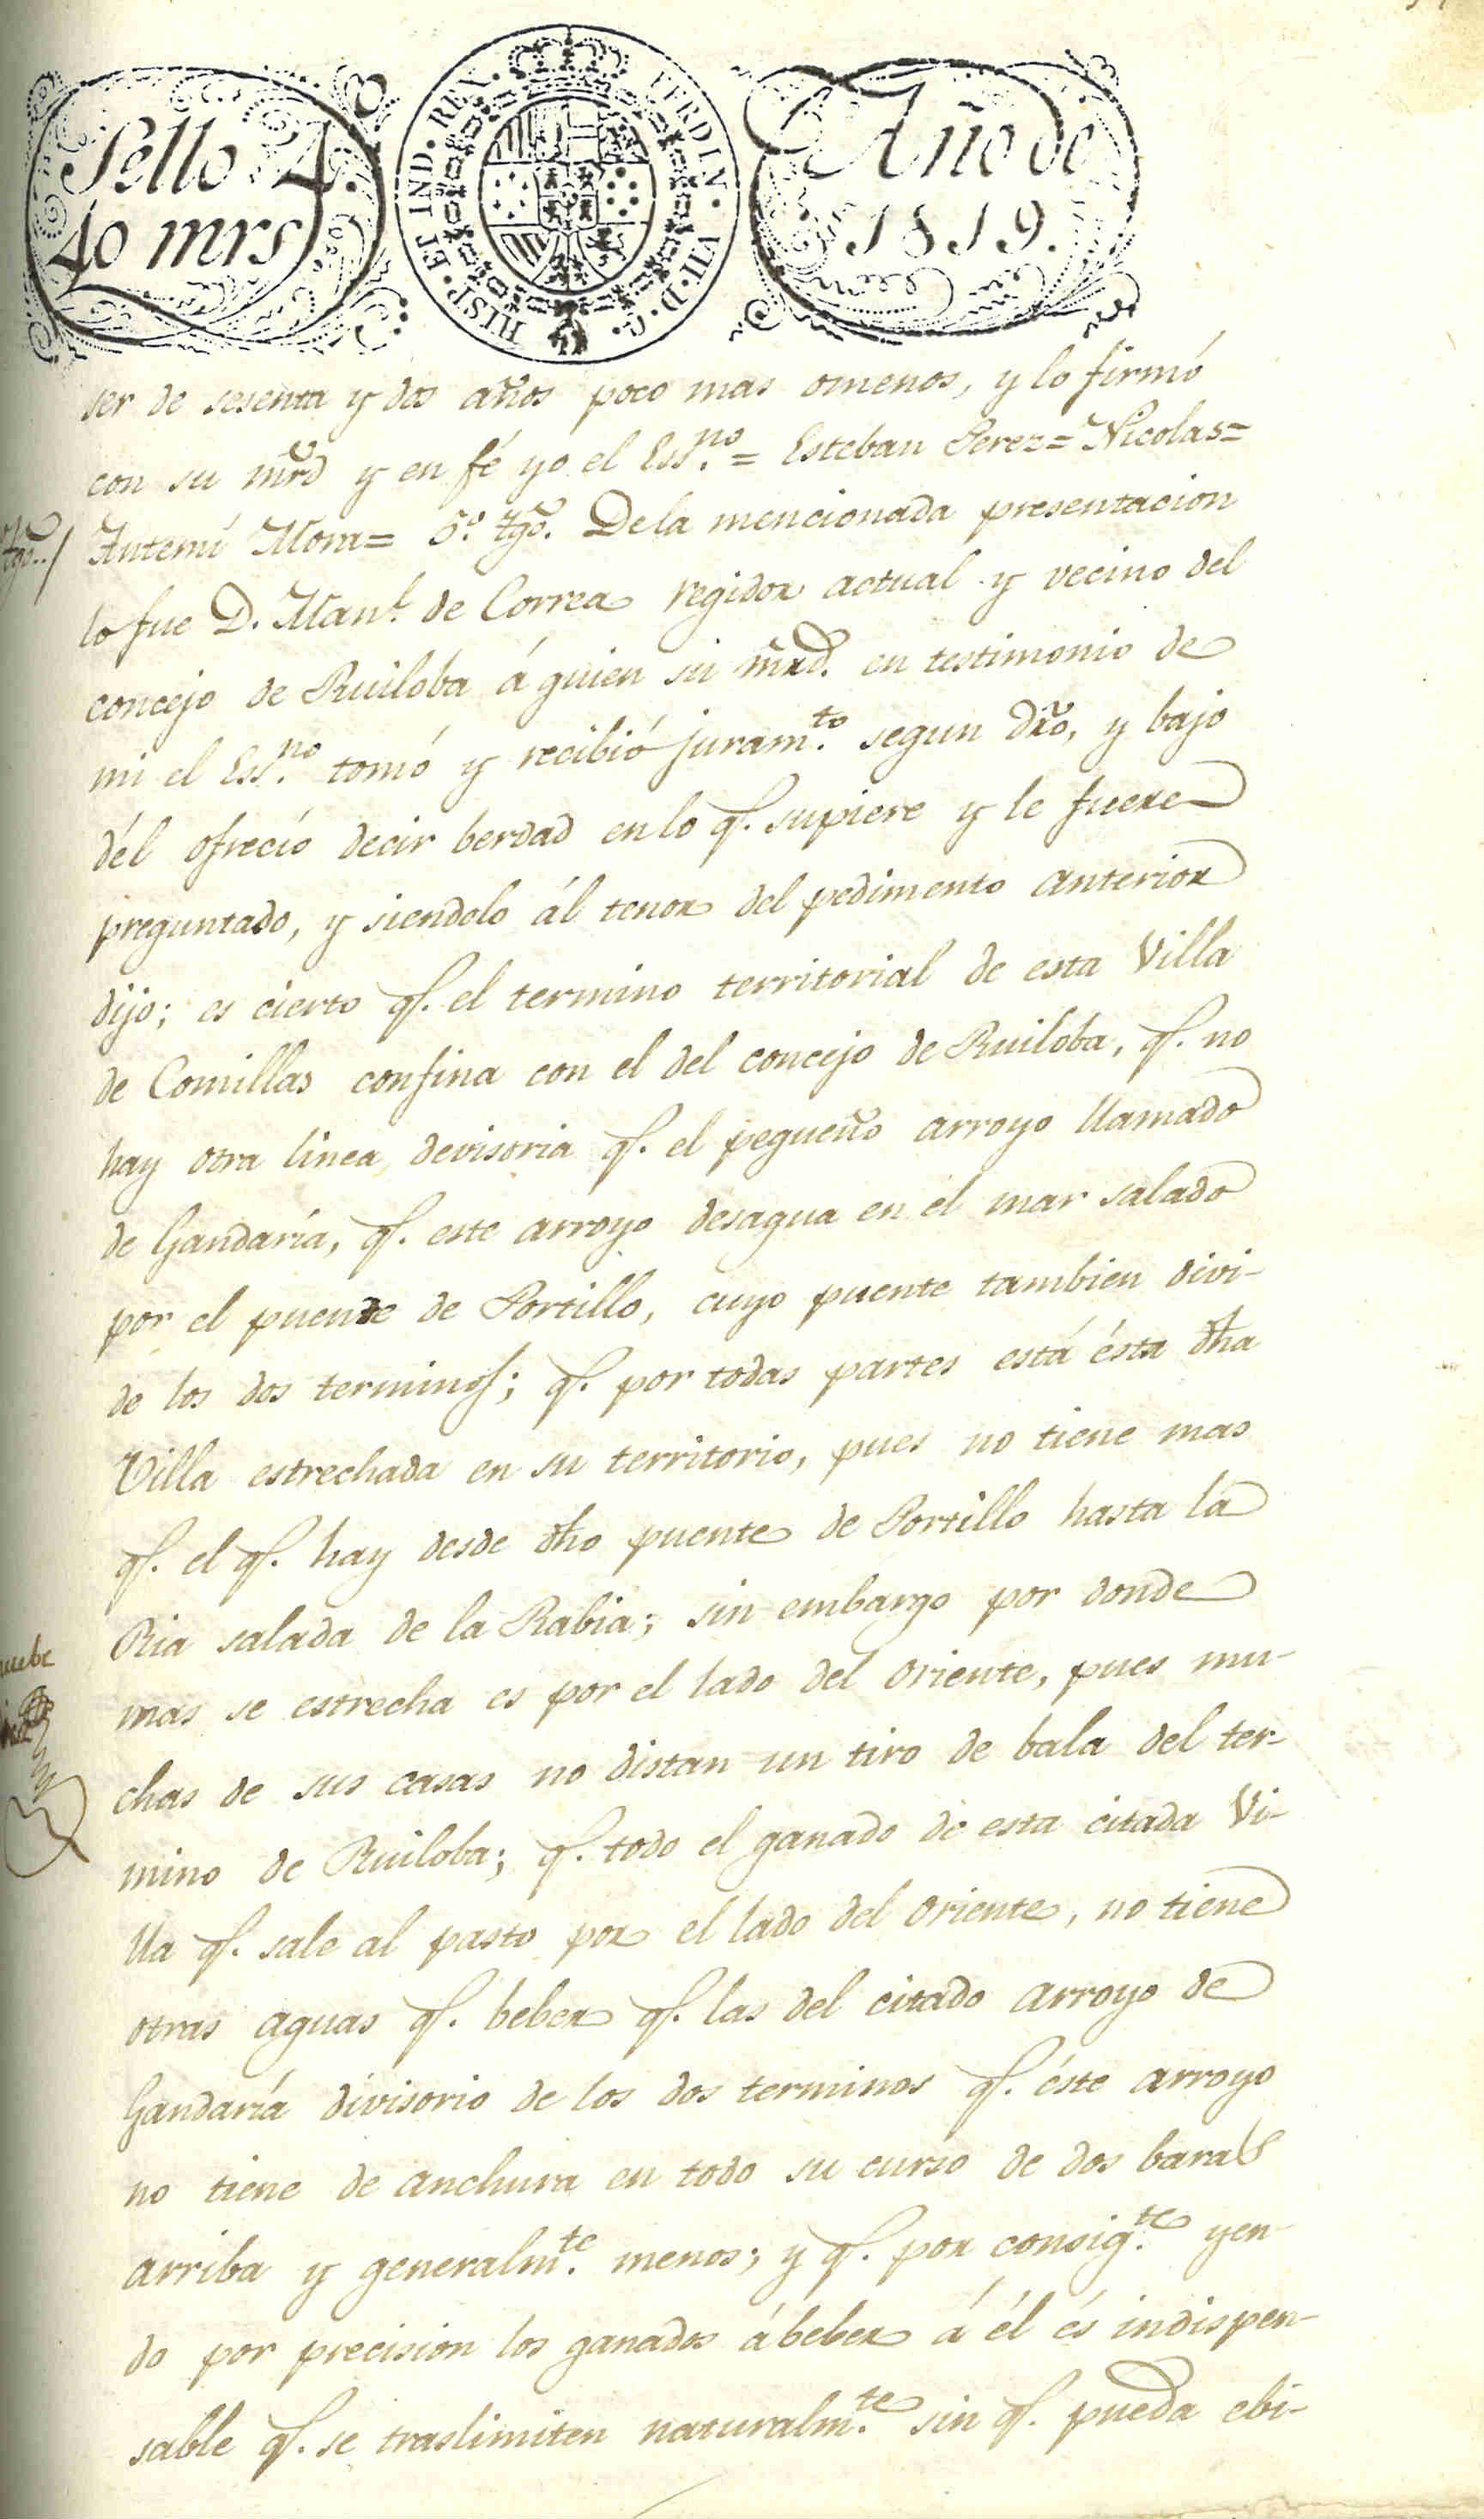 Sello 4.
40 mrs
HISP. ET IND. REX. FERDIN. VII. D. G.
Año de
1819.
ser de sesenta y dos años poco mas omenos, y lo firmó
con su mrd y en fé yo el Ess.no = Esteban Perez = Nicolas =
Antemi Mora = 5.º tgo. Dela mencionada presentacion
lo fue D. Man.l de Correa regidor actual y vecino del
concejo de Ruiloba á quien su mrd. en testimonio de
mi el Ess.no tomó y recibió juram.to segun dro, y bajo
dél ofreció decir berdad enlo q.e supiere y le fuere
preguntado, y siendolo ál tenor del pedimento anterior
dijo; es cierto q.e el termino territorial de esta Villa
de Comillas confina con el del concejo de Ruiloba, q.e no
hay otra linea devisoria q.e el pequeño arroyo llamado
de Gandaría, q.e este arroyo desagua en el mar salado
por el puente de Portillo, cuyo puente tambien divi-
de los dos terminos; q.e por todas partes está ésta dha
Villa estrechada en su territorio, pues no tiene mas
q.e el q.e hay desde dho puente de Portillo hasta la
Ria salada de la Rabia; sin embargo por donde
mas se estrecha es por el lado del oriente, pues mu-
chas de sus casas no distan un tiro de bala del ter-
mino de Ruiloba; q.e todo el ganado de esta citada Vi-
lla q.e sale al pasto por el lado del oriente, no tiene
otras aguas q.e beber q.e las del citado arroyo de
Gandaría divisorio de los dos terminos q.e éste arroyo
no tiene de anchura en todo su curso de dos baras
arriba y generalm.te menos; y q.e por consig.te yen-
do por precision los ganados á beber á él és indispen-
sable q.e se traslimiten naturalm.te sin q.e pueda ebi-
tgo../